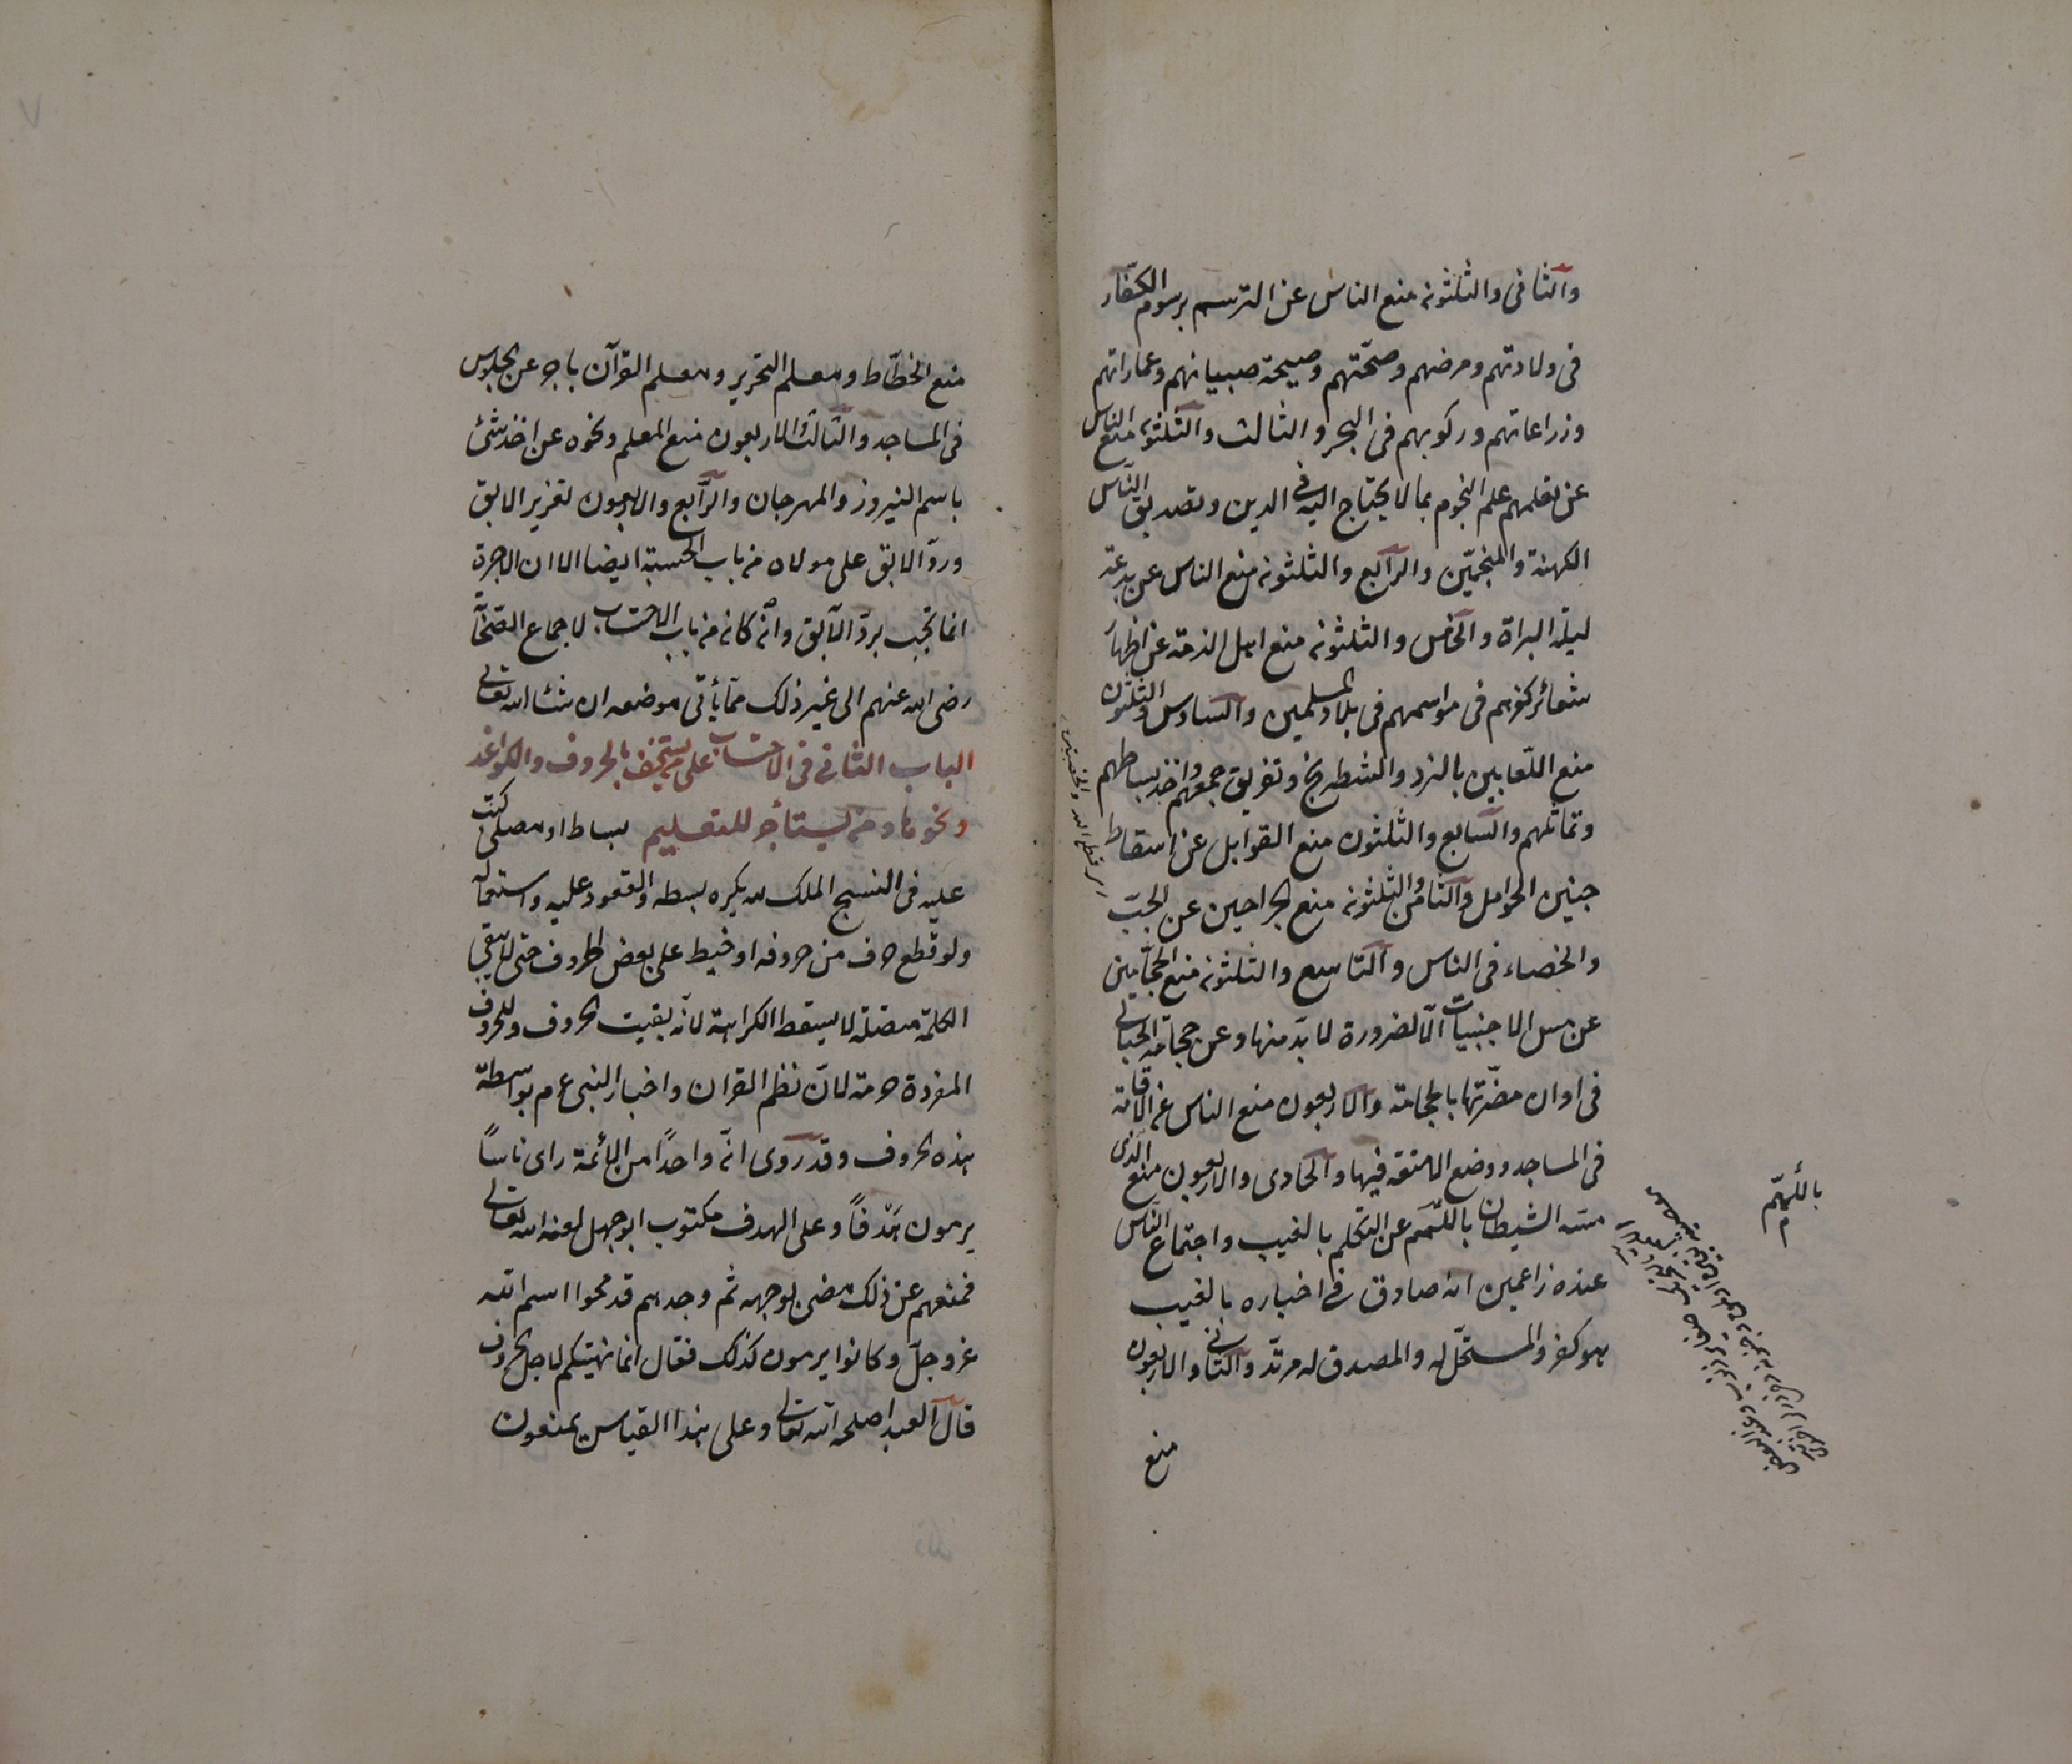 والثانى والثلثون منع الناس عن الترسم برسوم الكفّار
فى ولادتهم ومرضهم وصحّتهم وصيحة صبيانهم وعماراتهم
وزراعاتهم وركوبهم فى البحر والثالث والثلثون منع الناس
عن تعلمهم علم النجوم بما لا يحتاج اليه فى الدين وتصديق النّاس
الكهنة والمنجمّين والرابع والثلثون منع الناس عن بدعة
ليلة البراة والخامس والثلثون منع اهل الذمة عن اظهار
شعائر كفرهم فى مواسمهم فى بلاد المسلمين والسادس والثلثون
منع اللّعابين بالنرد والشطرنج وتفريق جمعهم واخذ بساطهم
وتماثلهم والسابع والثلثون منع القوابل عن اسقاط
جنين الحوامل والثامن والثلثون منع الجراحين عن الجبّ
والخصاء فى الناس والتاسع والثلثون منع الحجّامين
عن مس الاجنبيات الّا لضرورة لا بدّ منها وعن حجامة الحبالى
فى اوان مضّرتها بالحجامة والاربعون منع الناس عن الاقامة
فى المساجد ووضع الامتعة فيها والحادى والاربعون منع الذى
مسّه الشيطان باللّمم عن التكلم بالغيب واجتماع الناس
عنده زاعمين انه صادق فى اخباره بالغيب
هو كفر والمستحلّ له والمصدق له مرتدّ والثانى والاربعون
منع
باللهمّ م
منع الخطّاط ومعلم التحرير ومعلم القرآن باجر عن الجلوس
فى المساجد والثالث والاربعون منع المعلم ونحوه عن اخذ شئ
باسم النيروز والمهرجان والرابع والاربعون تعزير الابق
وردّ الابق على مولاه من باب الحسبة ايضا الا ان الاجرة
انما تجب بردّ الآبق وانّه كان من باب الاحتساب لاجماع الصّحابة
رضى الله عنهم الى غير ذلك ممّا يأتى موضعه ان شاء الله تعالى
الباب الثانى فى الاحتساب على من يستخف بالحروف والكواغد
ونحوها ومن يستأجر للتعليم بساط او مصلى كتب
عليه فى النسج الملك لله يكره بسطه والقعود عليه واستعماله
ولو قطع حرف من حروفه او خيط على بعض الحروف حتى لا يبقى
الكلمة متصلة لا يسقط الكراهة لانّه بقيت الحروف وللحروف
المفردة حرمة لانّ نظم القران واخبار النبى عم بواسطة
هذه الحروف وقد روى انّ واحدًا من الأئمة راى ناسًا
يرمون هَدَفاً وعلى الهدف مكتوب ابوجهل لعنه الله تعالى
فمنعهم عن ذلك ومضى لوجهه ثم وجدهم قد محوا اسم الله
عز وجلّ وكانوا يرمون كذلك فقال انما نهيتكم لاجل الحروف
قال العبد اصلحه الله تعالى وعلى هذا القياس يمنعون